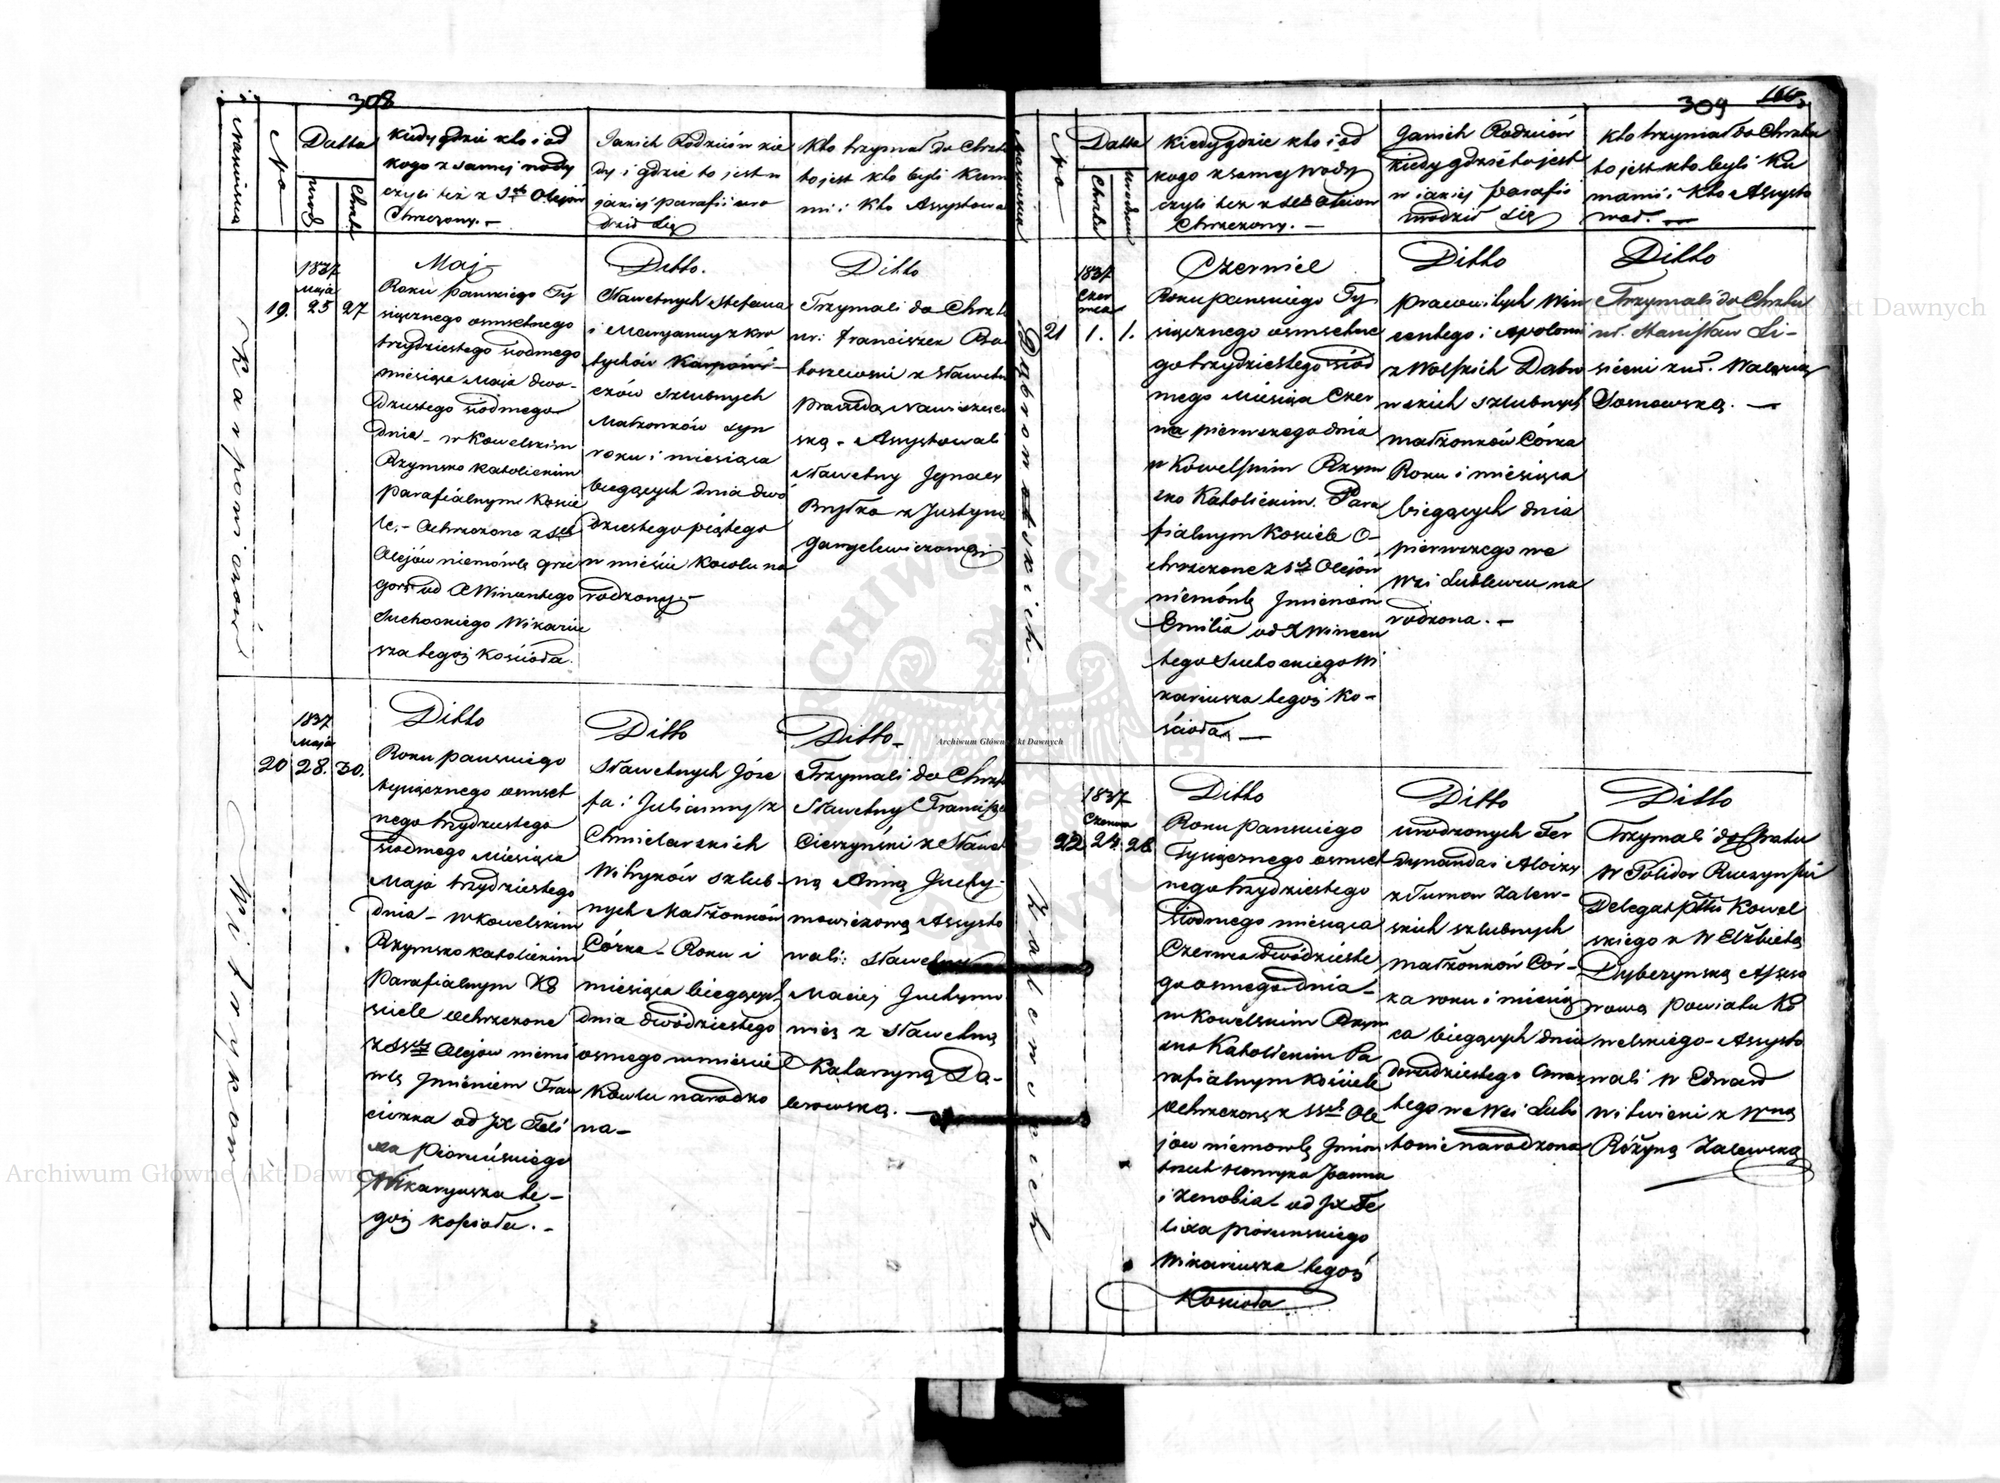 308
Nazwiska
No
Datta
urod
Chrztu
Kiedy gdzie kto i od
kogo z samej wody
czyli też z Sch Olejów
Chrzczony. –
Jakich Rodziców kie
dy i gdzie to jest w
jakiej parafii uro
dził się
Kto trzymał do Chrztu
to jest kto byli Kum
mi i kto Assystowa
Karpowiczów
19.
1837
Maja
25
27
Maj
Roku pańskiego Ty
siącznego osmsetnego
trzydziestego siodmego
miesiąca Maja dwo-
dziestego siodmego
dnia – w Kowelskim
Rzymsko Katolickim
parafialnym Koscie
le. – Ochrzczono z Sch
Olejów niemówlę Grze
gorz od X Wincentego
Suchockiego Wikariu
sza tegoż Kościoła.
Ditto.
Sławetnych Stefana
i Maryanny z Kro
tychów Karpowi-
czów szlubnych
Małżonków syn
roku i miesiąca
bieżących dnia dwó
dziestego piątego
w mieście Kowlu na
rodzony –
Ditto
Trzymali do Chrztu
ur: Franciszek Ba
toszewski z Sławetn
ską – Assystowali
Sławetny Jgnacy
z Justyną
Wityków
20
1837
Maja
28.
30.
Ditto
Roku pańskiego
tysiącznego osmset
nego trzydziestego
siodmego Miesiąca
Maja trzydziestego
dnia – w Kowelskim
Rzymsko Katolickim
Parafialnym Ko
sciele Ochrzczono
z SSch Olejów niemó
wlę Jmieniem Fran
ciszka od JX Feli
xa Piorunskiego
Wikaryusza te-
goż Koscioła. –
Ditto
Sławetnych Józe
fa i Julianny z
Chmielarskich
Wityków szlub-
nych Małżonków
Córka – Roku i
miesiąca bieżących
dnia dwódziestego
osmego w mieście
Kowlu narodzo
na –
Ditto –
Trzymali do Chrztu
Sławetny Francisze
Cieszyński z Sławet
ną Anną Juchy-
mowiczową Assysto
wali: Sławetny
Maciej Juchymo
wicz z Sławetną
Katarzyną Dą-
browską. –
309
166
Nazwiska
No
Datta
Chrztu
urodzen
Kiedy gdzie kto i od
kogo z samej wody
czyli też z SSch Oleiów
Chrzczony. –
Jakich Rodziców
kiedy gdzie to jest
w jakiej parafii
urodził się
Kto trzymał do Chrztu
to jest kto byli Ku
mami i kto Assysto
wał. –
Dąbrowskich.
21
1837
Czer
wca
1.
1.
Czerwiec
Roku pańskiego Ty
siącznego osmsetne
go trzydziestego siód
mego Miesiąca Czer
wca pierwszego dnia
w Kowelskim Rzym
sko Katolickim Para
fialnym Kosciele O-
chrzczone z SSch Olejów
niemówlę Jmieniem
Emilia od X Wincen
tego Suchockiego Wi
kariusza tegoż Ko-
ścioła. –
Ditto
prawowitych Win
centego i Apolonii
z Wolskich Dabro
wskich szlubnych
małżonków Córka
Roku i miesiąca
bieżących dnia
pierwszego we
Wsi Lublewcu na
rodzona. –
Ditto
Trzymali do Chrztu
ur. Stanisław Li-
siecki z ur. Waleryą
Sosnowską. –
Zalewskich
22
1837
Czerwca
24.
28
Ditto
Roku pańskiego
Tysiącznego osmset
nego trzydziestego
siodmego miesiąca
Czerwca dwódzieste
go osmego dnia –
w Kowelskim Rzym
sko Katolickim Pa
rafialnym Kościele
Ochrzczone z SSch Ole
jów niemowlę Jmion
trzech Henryka Joanna
i Zenobia – od JX Fe
lixa Piorunskiego
Wikariusza tegoż
Kościoła
Ditto
urodzonych Fer
dynanda i Aloizy
z Zalew-
skich szlubnych
małżonków Cór-
ka roku i miesią
ca bieżących dnia
dwudziestego czwar
tego we Wsi Lubi
towie narodzona
Ditto
Trzymali do Chrztu
W Polidor Ruczyński
Delegat pttu Kowel
skiego z W Elżbietą
Dybczynską Assess
rową powiatu Ko
welskiego – Assysto
wali W Edward
Witwicki z Wną
Różyną Zalewską
Archiwum Główne Akt Dawnych
Archiwum Główne Akt Dawnych
Archiwum Główne Akt Dawnych